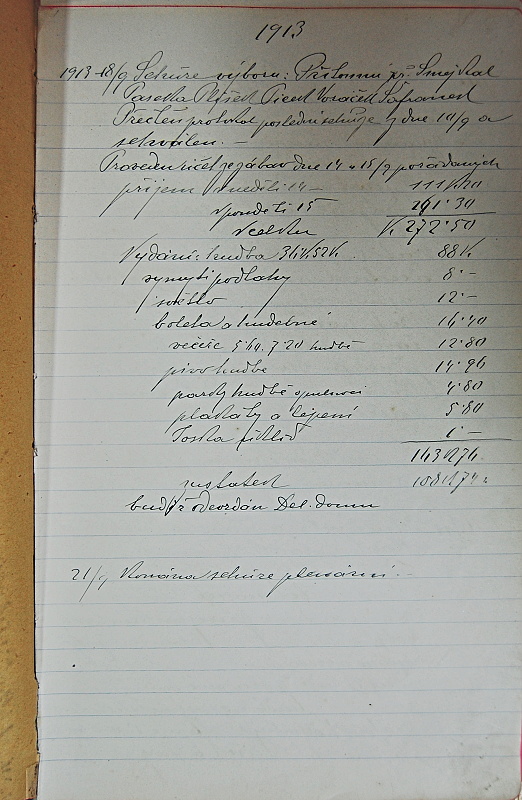 1913
1913 18/9 Schůze výboru: Přítomni př. Smejkal
Paseka Plíšek Picek Voráček Šafránek
Přečten protokol poslední schůze ze dne 10/9 a
schválen. —
Proveden účet ze zábav dne 14 a 15/9 pořádaných
příjem v neděli 14 — 111K20
v pondělí 15 161·30
Vcelku K 272·50
Vydání: hudba 36K, 52K 88K
vymytí podlahy 8·—
světlo 12·—
boleta a hudebné 14·40
večeře 5 hud. 7·20 hudbě 12·80
pivo hudbě 14·96
hudbě 4·80
plakáty a lepení 5·80
1·—
163K76
zustatek 108K74
buďiž odevzdán Děl. domu
21/9 Konána schůze plenární. —